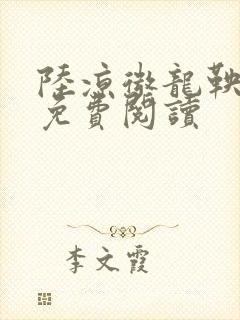 陸凉徵龍鞅
免費閱讀
李文霞